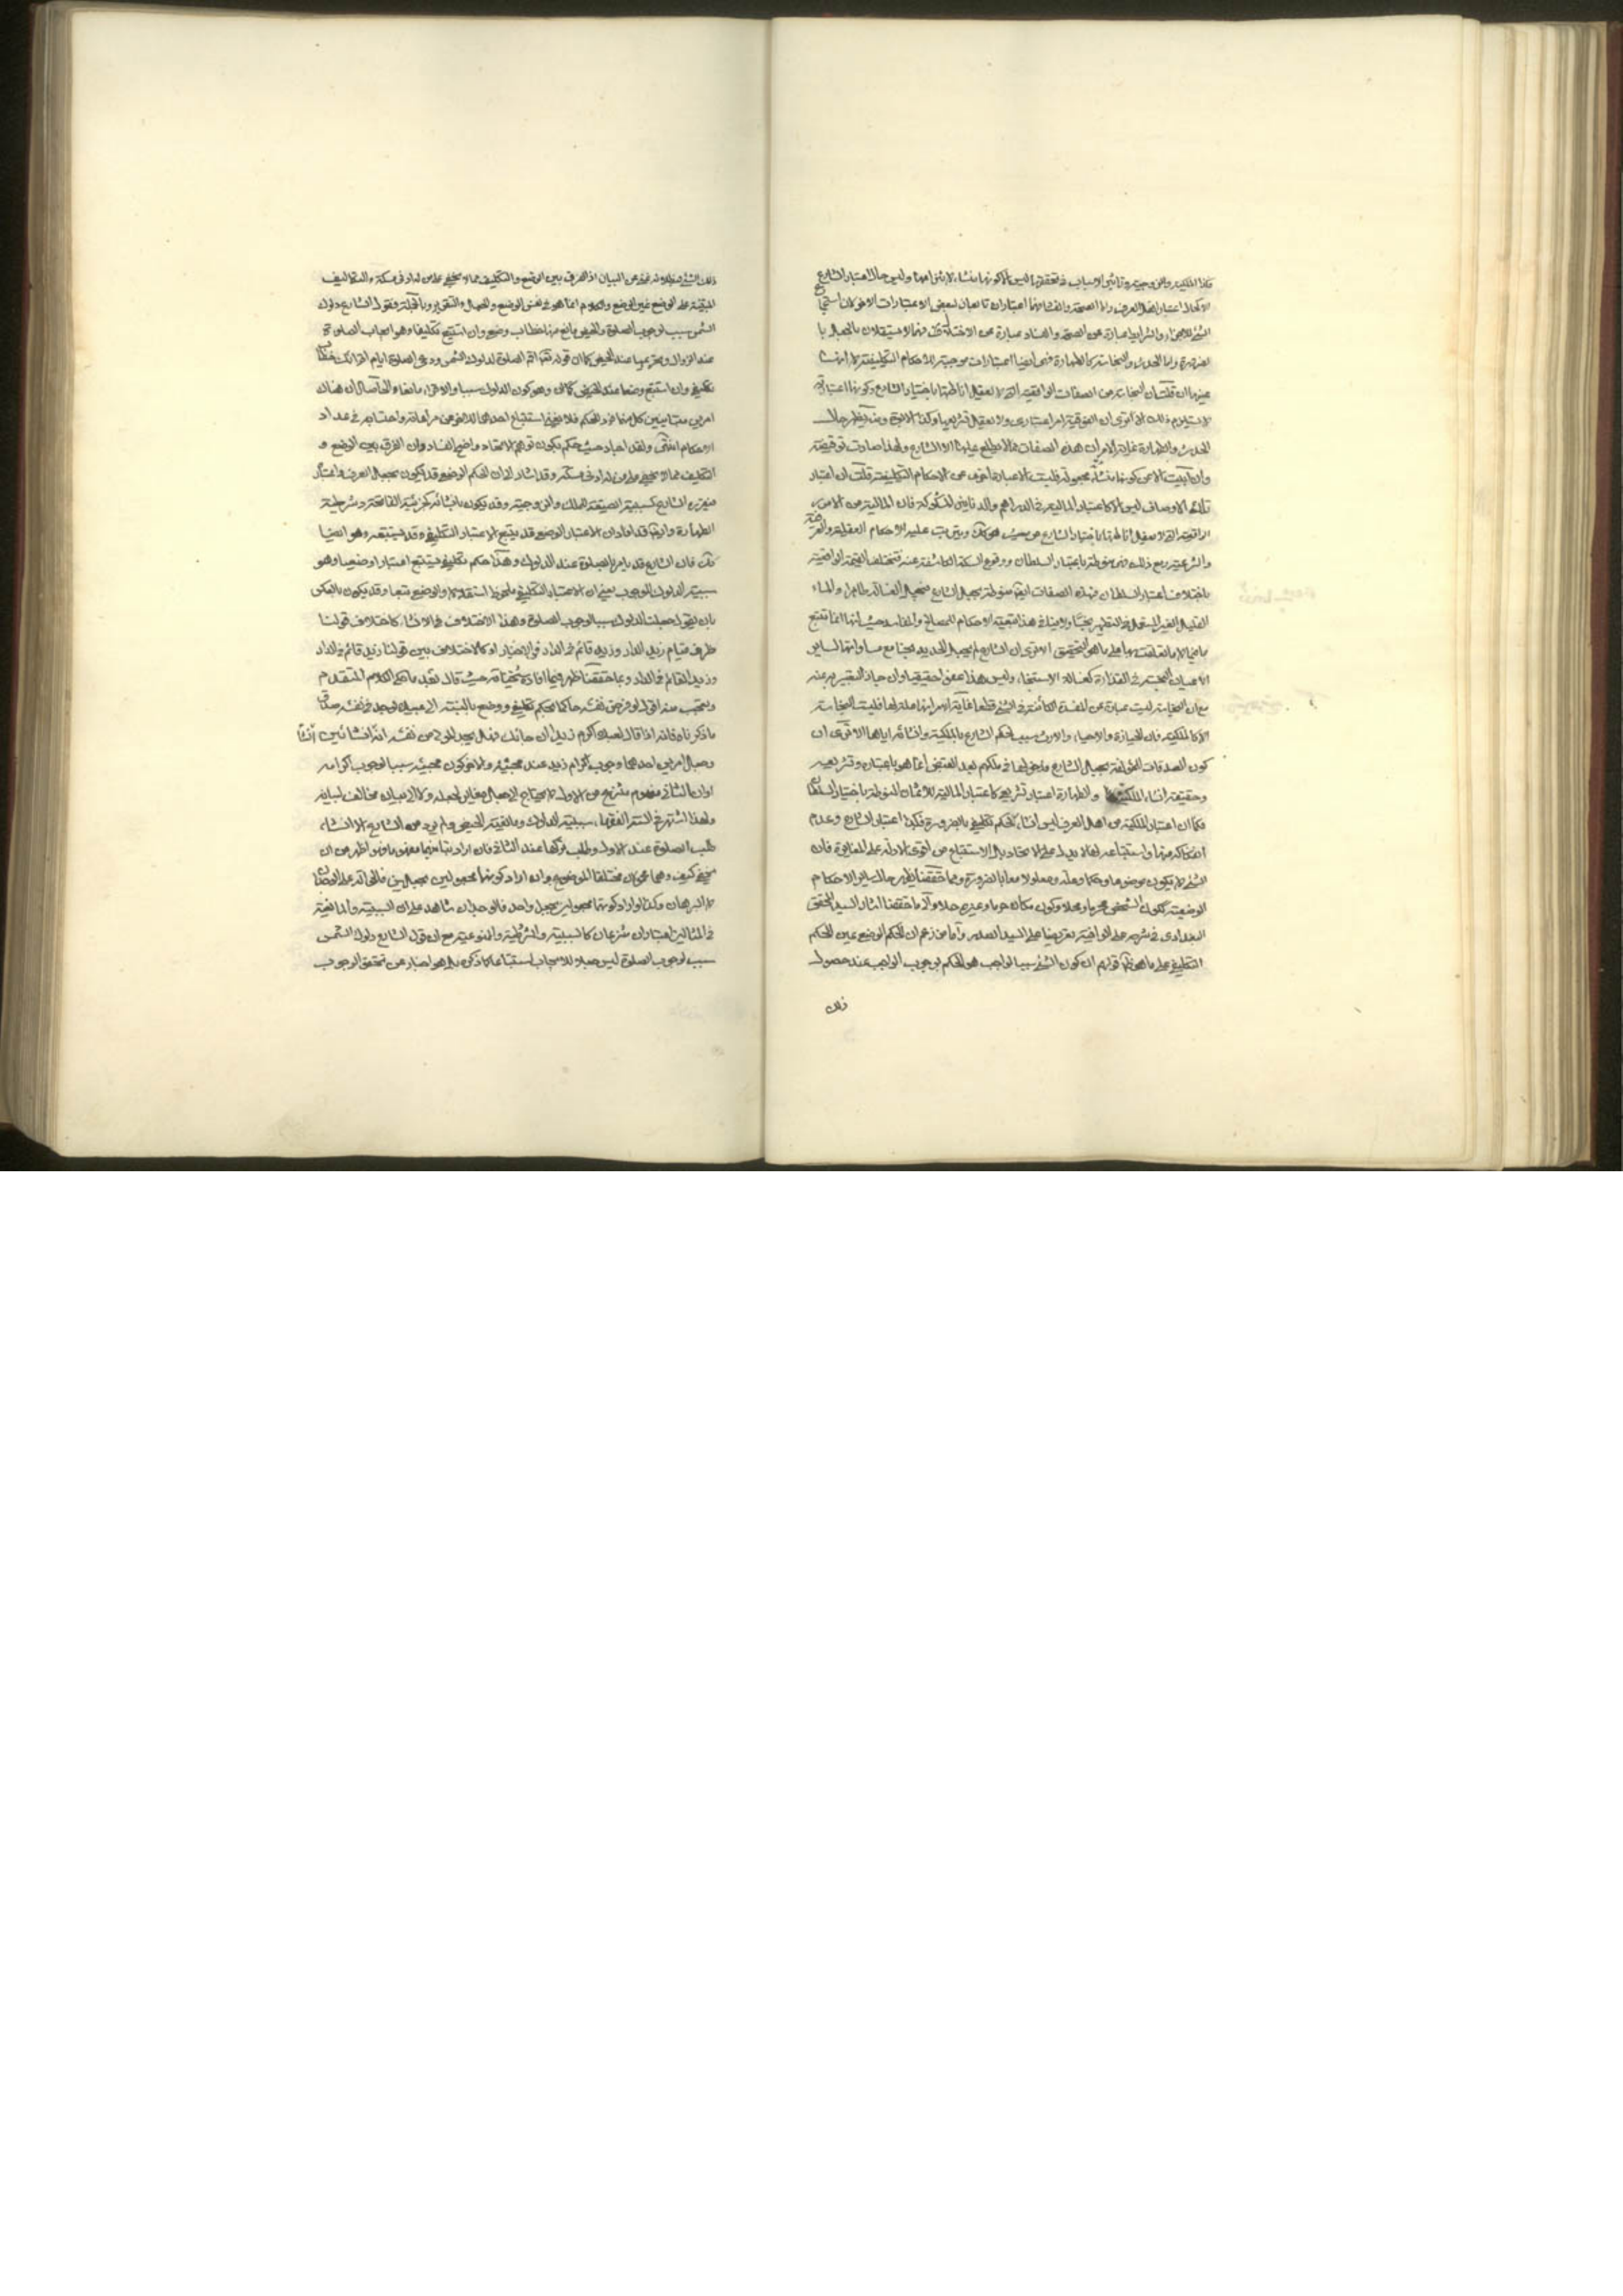 فكذا الملكية والزوجية وتأثير الاسباب في تحققها ليس الا كونها منشاء لانتزاعها وليس حال اعتبار الشارع
الا كحال اعتبار اهل العرف واما الصحة والفساد فهما اعتباران تابعان لبعض الاعتبارات الاخر فان
الشيء للاجزاء والشرايط عبارة عن الصحة والفساد عبارة عن الاختلال فهما لا يستقلان بالجعل
بالضرورة واما الحدث والنجاسة كالطهارة فهي ايضا اعتبارات موجبة للاحكام التكليفية لا انها
عينها ان قلت ان النجاسة من الصفات الواقعية التي لا يعقل اناطتها باختيار الشارع وكونها اعتبارية
لا يستلزم ذلك الا ترى ان الفوقية امر اعتباري ولا يعقل تشريعها وكذا الابوة ومنه يظهر حال
الحدث والطهارة غاية الامر ان هذه الصفات مما لا يطلع عليها الا الشارع ولهذا صارت توقيفية
وان ابيت الا عن كونها منشأة مجعولة فليست الا عبارة اخرى عن الاحكام التكليفية قلت ان اعتبار
تلك الاوصاف ليس الا كاعتبار المالية في الدراهم والدنانير المسكوكة فان المالية من الامور
الواقعية التي لا يعقل اناطتها باختيار الشارع من حيث هي كك ويترتب عليه الاحكام العقلية والعرفية
والشرعية ومع ذلك فهي منوطة باعتبار السلطان ووقوع السكة الكاشفة عنه فتختلف القيمة الواقعية
باختلاف اعتبار السلطان فهذه الصفات ايضا منوطة بجعل الشارع فيجعل الغسالة طاهرا والماء
القليل الغير المستعمل في التطهير نجسا ولا ينافي هذا تبعية الاحكام للمصالح والمفاسد حيث انها انما تتبع
ما فيها لا ما تعلقت بها على ما هو التحقيق الا ترى ان الشارع لم يجعل الحديد نجسا مع مساواتها لسائر
الاعيان النجسة في القذارة كغسالة الاستنجاء وليس هذا عفوا حقيقيا وان جاز التعبير به عنه
مع ان النجاسة ليست عبارة عن المفسدة الكائنة في الشيء قطعا غاية الامر انها علة لها فليست النجاسة
الا كالملكية فان الحيازة والاحياء والارث سبب لحكم الشارع بالملكية وانشائه اياها الا ترى ان
كون الصدقات المؤلفة بجعل الشارع ودخولها في ملكهم بعد القبض انما هو باعتباره وتشريعه
وحقيقة انشاء الملكية والطهارة اعتبار تشريعي كاعتبار المالية للاثمان المنوطة باختيار السلطان
فكما ان اعتبار الملكية من اهل العرف ليس انشاء لحكم تكليفي بالضرورة فكذا اعتبار الشارع وعدم
انفكاكه عنها واستتباعه لها لا يدل على الاتحاد بل الاستتباع من اقوى الادلة على المغايرة فان
الشيء لا يكون موضوعا وحكما وعلة ومعلولا معا بالضرورة ومما حققنا يظهر حال سائر الاحكام
الوضعية ككون الشخص محرما ومحلا وكون مكان حرما وغيره حلا والى ما حققنا اشار السيد المحقق
البغدادي في شرحه على الوافية تعريضا على السيد الصدر واما من زعم ان الحكم الوضعي عين الحكم
التكليفي على ما هو ظاهر قولهم ان كون الشيء سببا لواجب هو الحكم بوجوب الواجب عند حصول
ذلك
ذلك الشيء فبطلانه غني عن البيان اذ الفرق بين الوضع والتكليف مما لا يخفى على من له ادنى مسكة والتكاليف
المبتنية على الوضع غير الوضع والكلام انما هو في نفس الوضع والجعل والتقرير وبالجملة فقول الشارع دلوك
الشمس سبب لوجوب الصلوة والحيض مانع منها خطاب وضعي وان استتبع تكليفا وهو ايجاب الصلوة
عند الزوال وتحريمها عند الحيض كما ان قوله تعالى اقم الصلوة لدلوك الشمس ودعي الصلوة ايام اقرائك خطاب
تكليفي وان استتبع وضعا عند الحيض وهو كون الدلوك سببا والاقراء مانعا والحاصل ان هناك
امرين متباينين كل منهما فرد للحكم فلا يغني استتباع احدهما للاخر عن مراعاته واحتسابه في عداد
الاحكام انتهى ولقد اجاد حيث حكم بكون توهم الاتحاد واضح الفساد وان الفرق بين الوضع و
التكليف مما لا يخفى على من له ادنى مسكة وقد اشار الى ان الحكم الوضعي قد يكون بجعل العرف واعتبار
فيقرره الشارع كسببية الصيغة للملك والزوجية وقد يكون بانشائه كجزئية الفاتحة وشرطية
الطهارة وايضا قد افاد ان الاعتبار الوضعي قد يتبع الاعتبار التكليفي وقد يستتبعه وهو ايضا
كك فان الشارع قد يامر بالصلوة عند الدلوك وهذا حكم تكليفي يستتبع اعتبارا وضعيا وهو
سببية الدلوك للوجوب بمعنى ان الاعتبار التكليفي ملحوظ استقلالا والوضعي تبعا وقد يكون بالعكس
بان يقول جعلت الدلوك سببا لوجوب الصلوة وهذا الاختلاف في الانشاء كاختلاف قولنا
ظرف قيام زيد الدار وزيد قائم في الدار في الاخبار او كالاختلاف بين قولنا زيد قائم في الدار
وزيد القائم في الدار وبما حققنا ظهر فيما افاده شيخنا حيث قال بعد ما حكى الكلام المتقدم
وتعجب منه اقول لو فرض نفسه حاكما بحكم تكليفي ووضعي بالنسبة الى عبده لوجد في نفسه صدق
ما ذكرناه فانه اذا قال لعبده اكرم زيدا ان جاءك فهل يجد المولى من نفسه انه انشأ انشائين
وجعل امرين احدهما وجوب اكرام زيد عند مجيئه والاخر كون مجيئه سببا لوجوب اكرامه
او ان الثاني مفهوم منتزع من الاول لا يحتاج الى جعل مغاير لجعله ولا الى بيان مخالف لبيانه
ولهذا اشتهر في السنة الفقهاء سببية الدلوك ومانعية الحيض ولم يرد من الشارع الا انشاء
طلب الصلوة عند الاول وطلب تركها عند الثاني فان اراد تباينهما مفهوما فهو اظهر من ان
يخفى كيف وهما محمولان مختلفا الموضوع وان اراد كونهما مجعولين بجعلين فالحوالة على الوجدان
لا البرهان وكذا لو اراد كونهما مجعولين بجعل واحد فالوجدان شاهد على ان السببية والمانعية
في المثالين اعتباران منتزعان كالمسببية والمشروطية والممنوعية مع ان قول الشارع دلوك الشمس
سبب لوجوب الصلوة ليس جعلا للايجاب استتباعا كما ذكره بل هو اخبار عن تحقق الوجوب